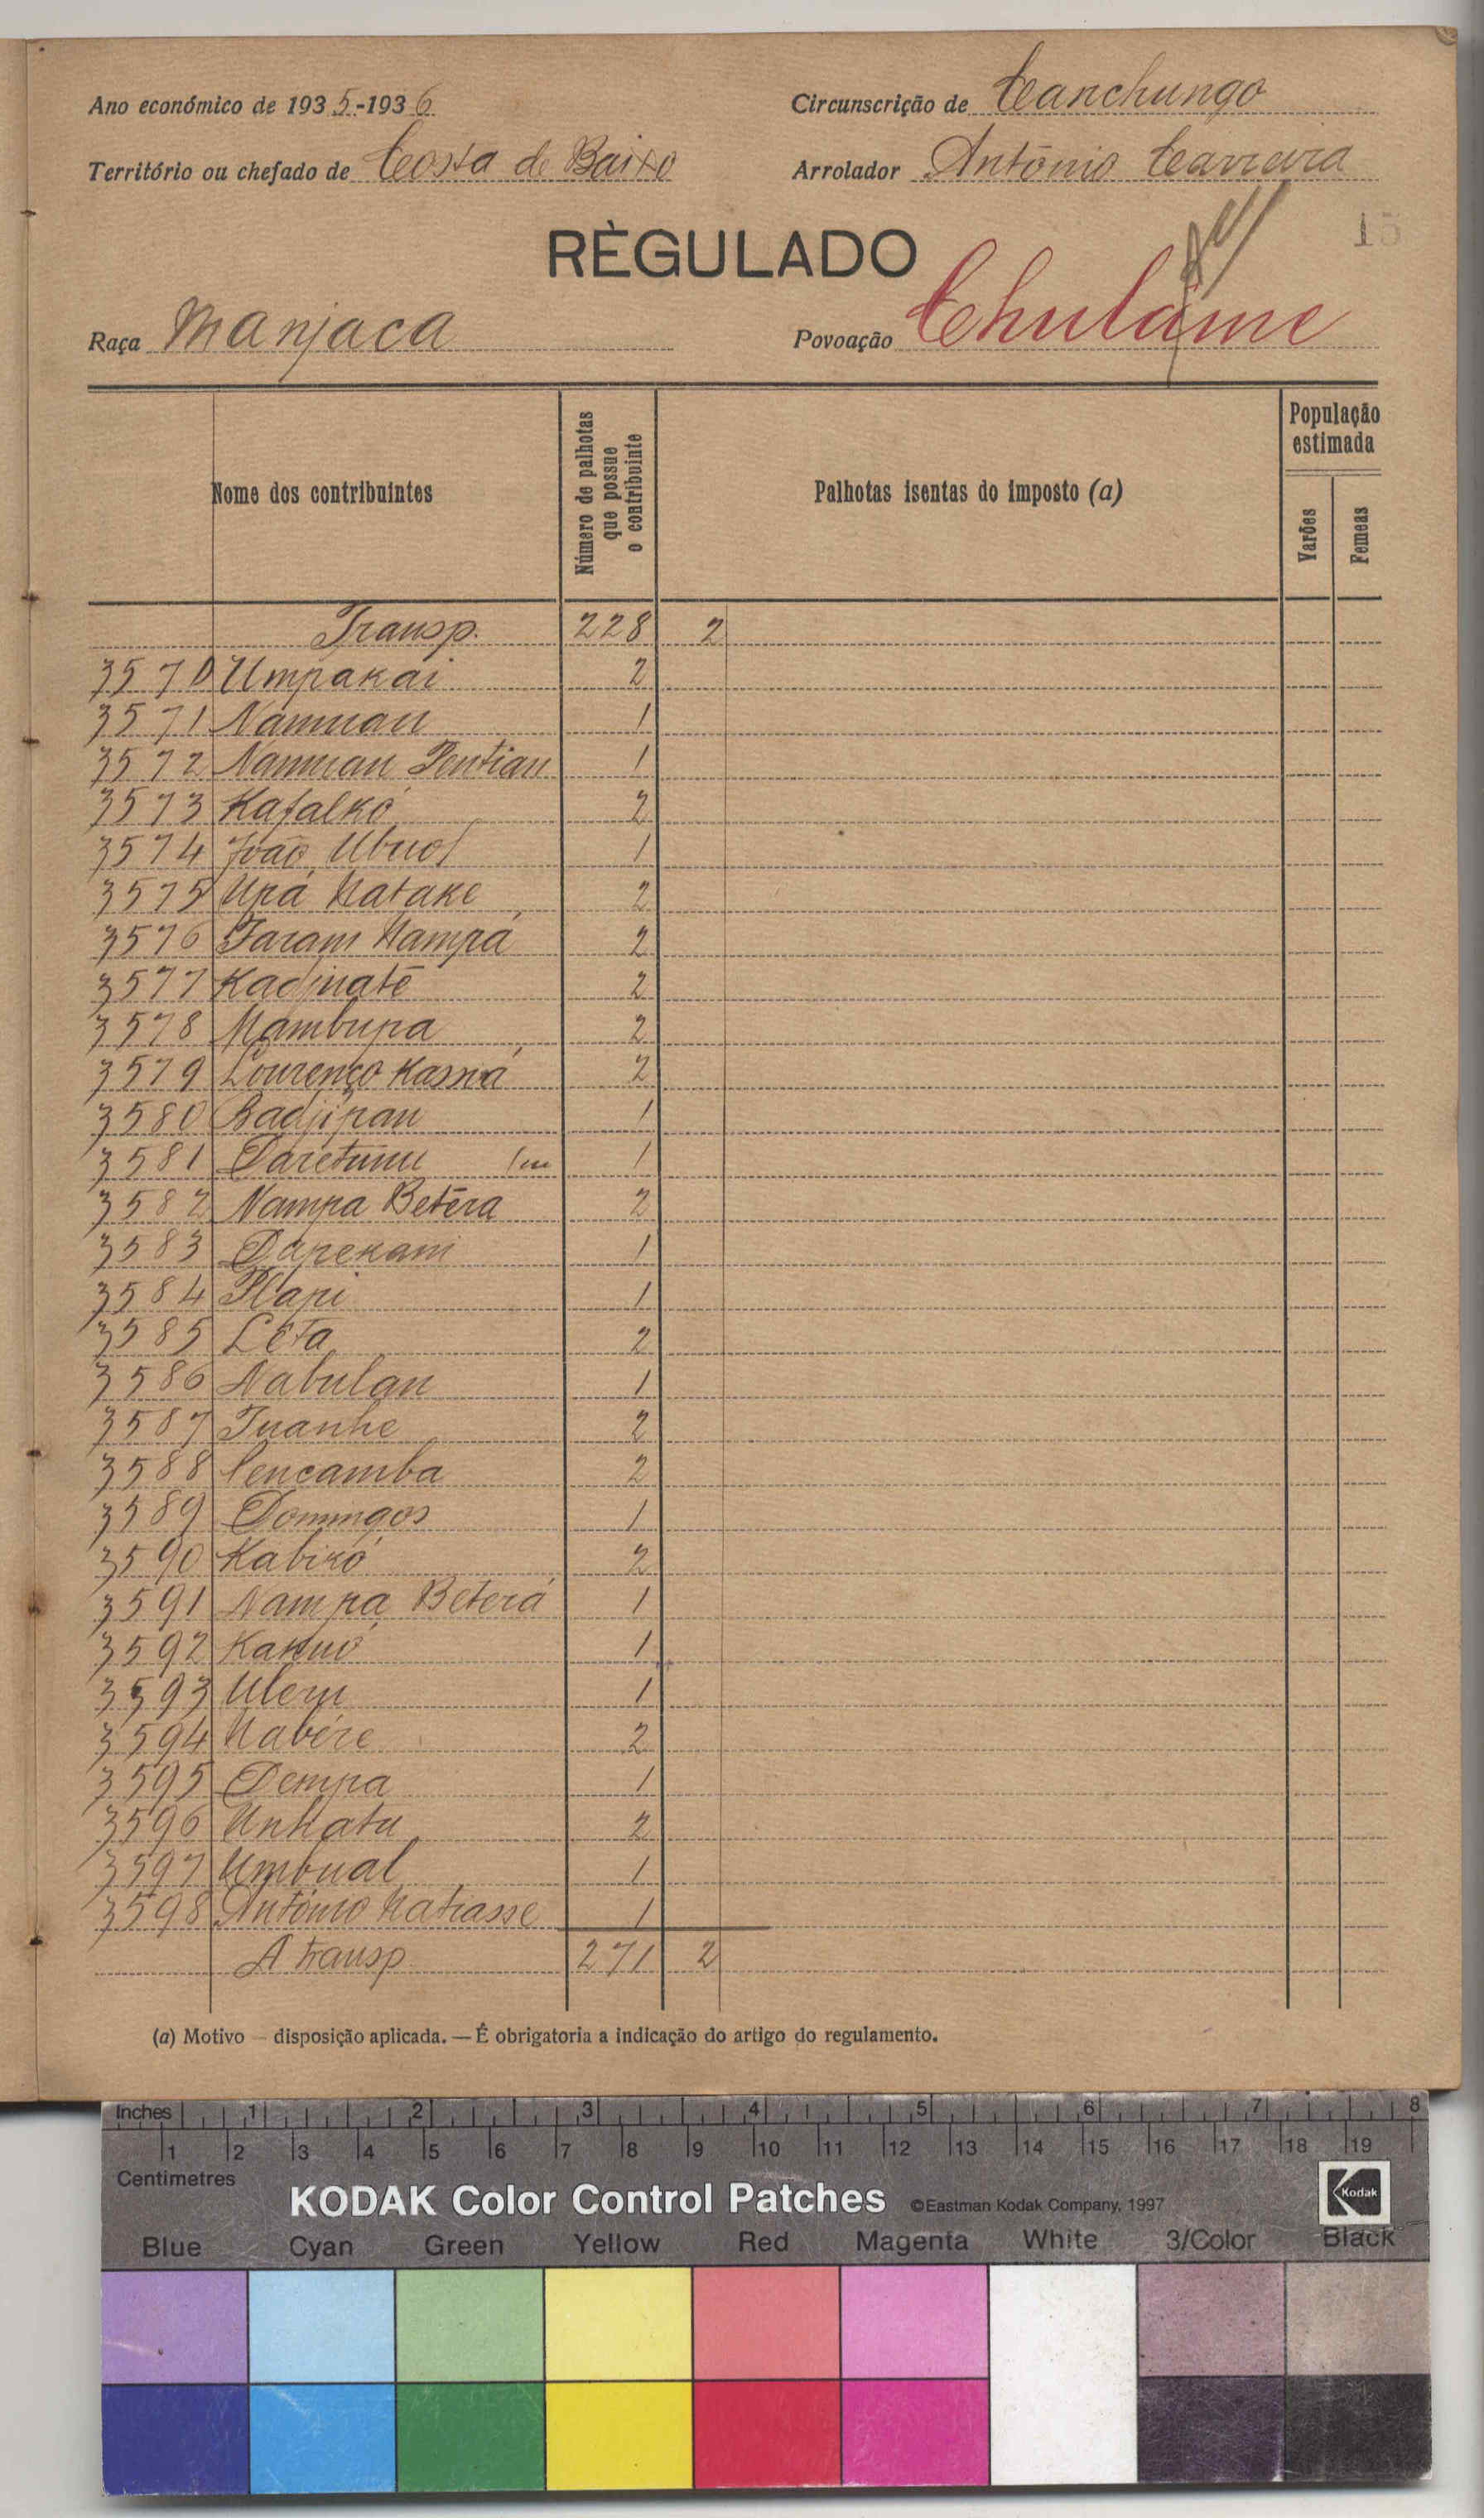 Ano económico de 1935-1936
Circunscrição de Canchungo
Território ou chefado de Costa de Baixo
Arrolador António Carreira
15
RÈGULADO
Raça Manjaca
Povoação Chulame
Nome dos contribuintes
Número de palhotas que possue o contribuinte
Palhotas isentas do imposto (a)
População estimada
Varões
Femeas
Transp. 228 2
3570 Umpakai 2
3571 Namuan 1
3572 Namuan Pentian 1
3573 Kafalkó 2
3574 João Ubuol 1
3575 Upá Natake 2
3576 Faram Nampá 2
3577 Kadjnatē 2
3578 Mambupa 2
3579 Lourenço Kassiá 2
3580 Badjipan 1
3581 Daretumu 1
3582 Nampa Betēra 2
3583 Dapekam 1
3584 Plapi 1
3585 Lēta 2
3586 Nabulan 1
3587 Tuanhe 2
3588 Pencamba 2
3589 Domingos 1
3590 Kabikó 2
3591 Nampa Beterá 1
3592 Kakuó 1
3593 Ulem 1
3594 Nabére 2
3595 Dempa 1
3596 UnKatu 2
3597 Umbual 1
3598 António Natiasse 1
A transp 271 2
(a) Motivo — disposição aplicada. — É obrigatoria a indicação do artigo do regulamento.
Inches 1 2 3 4 5 6 7 8
1 2 3 4 5 6 7 8 9 10 11 12 13 14 15 16 17 18 19
Centimetres
KODAK Color Control Patches ©Eastman Kodak Company, 1997 Kodak
Blue Cyan Green Yellow Red Magenta White 3/Color Black